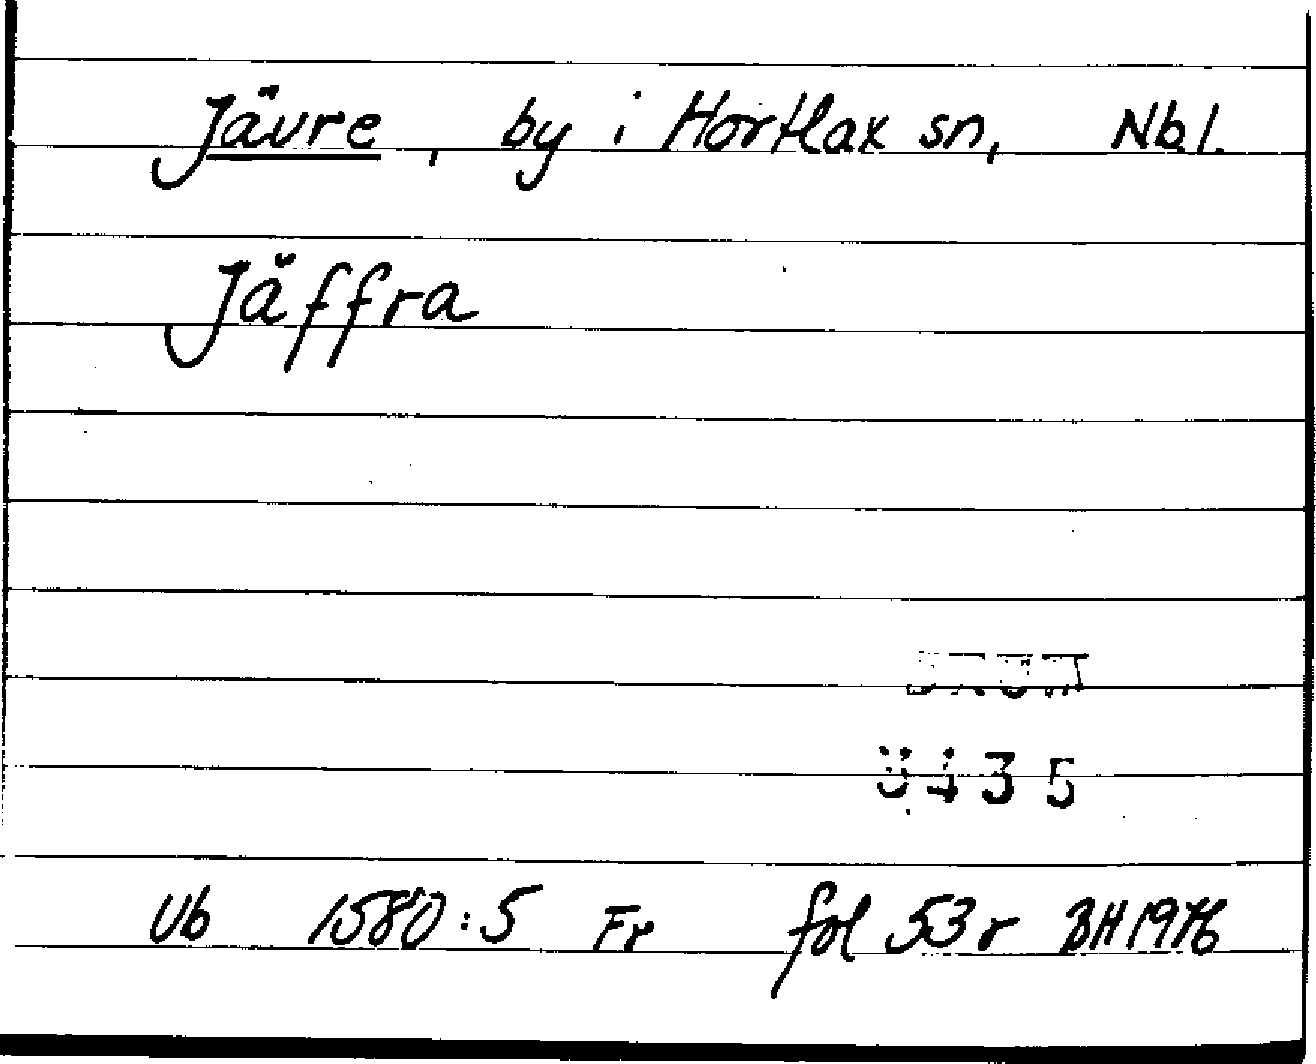 Jävre, by i Hortlax sn, Nbl.
Jäffra
3435
Ub 1580:5 Fr fol 53r BH 1976